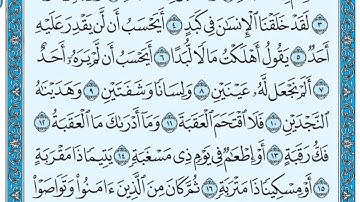 ٣ لَقَدْ خَلَقْنَا الْإِنسَانَ فِي كَبَدٍ ٤ أَيَحْسَبُ أَن لَّن يَقْدِرَ عَلَيْهِ
أَحَدٌ ٥ يَقُولُ أَهْلَكْتُ مَالًا لُّبَدًا ٦ أَيَحْسَبُ أَن لَّمْ يَرَهُۥٓ أَحَدٌ
٧ أَلَمْ نَجْعَل لَّهُۥ عَيْنَيْنِ ٨ وَلِسَانًا وَشَفَتَيْنِ ٩ وَهَدَيْنَٰهُ
النَّجْدَيْنِ ١٠ فَلَا اقْتَحَمَ الْعَقَبَةَ ١١ وَمَآ أَدْرَىٰكَ مَا الْعَقَبَةُ ١٢
فَكُّ رَقَبَةٍ ١٣ أَوْ إِطْعَٰمٌ فِي يَوْمٍ ذِي مَسْغَبَةٍ ١٤ يَتِيمًا ذَا مَقْرَبَةٍ
١٥ أَوْ مِسْكِينًا ذَا مَتْرَبَةٍ ١٦ ثُمَّ كَانَ مِنَ الَّذِينَ ءَامَنُوا۟ وَتَوَاصَوْا۟